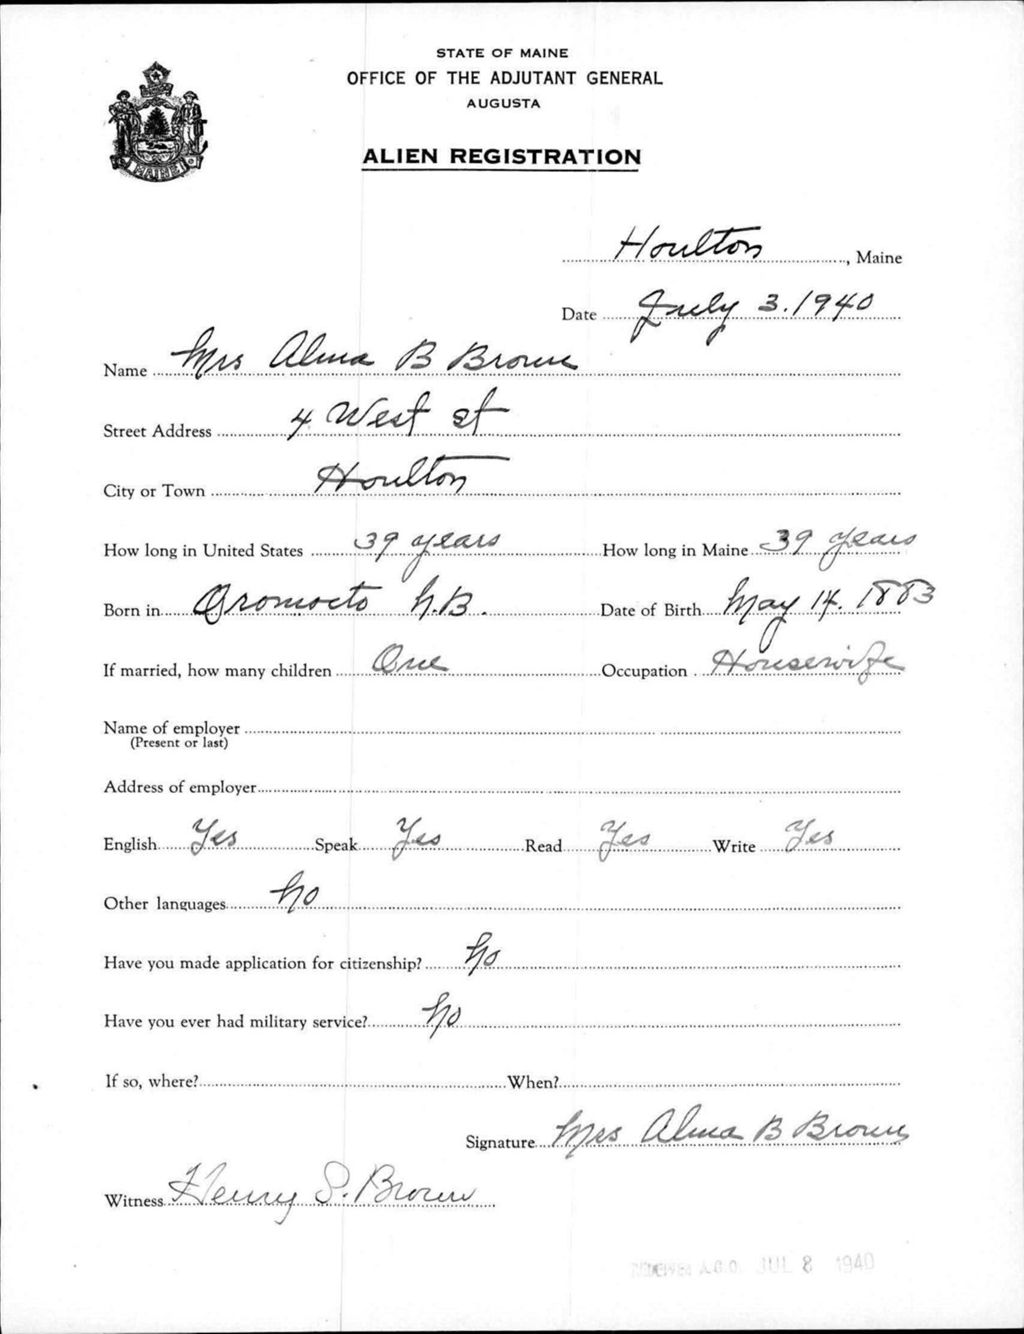 STATE OF MAINE
OFFICE OF THE ADJUTANT GENERAL
AUGUSTA
ALIEN REGISTRATION
MAINE
Houlton, Maine
Date July 3. 1940
Name Mrs Alma B Brown
Street Address 4 West st
City or Town Houlton
How long in United States 39 years How long in Maine 39 years
Born in Oromocto N.B. Date of Birth May 14. 1883
If married, how many children One Occupation Housewife
Name of employer
(Present or last)
Address of employer
English Yes Speak Yes Read Yes Write Yes
Other languages No
Have you made application for citizenship? No
Have you ever had military service? No
If so, where? When?
Signature Mrs Alma B Brown
Witness Henry S. Brown
RECEIVED A.G.O. JUL 8 1940